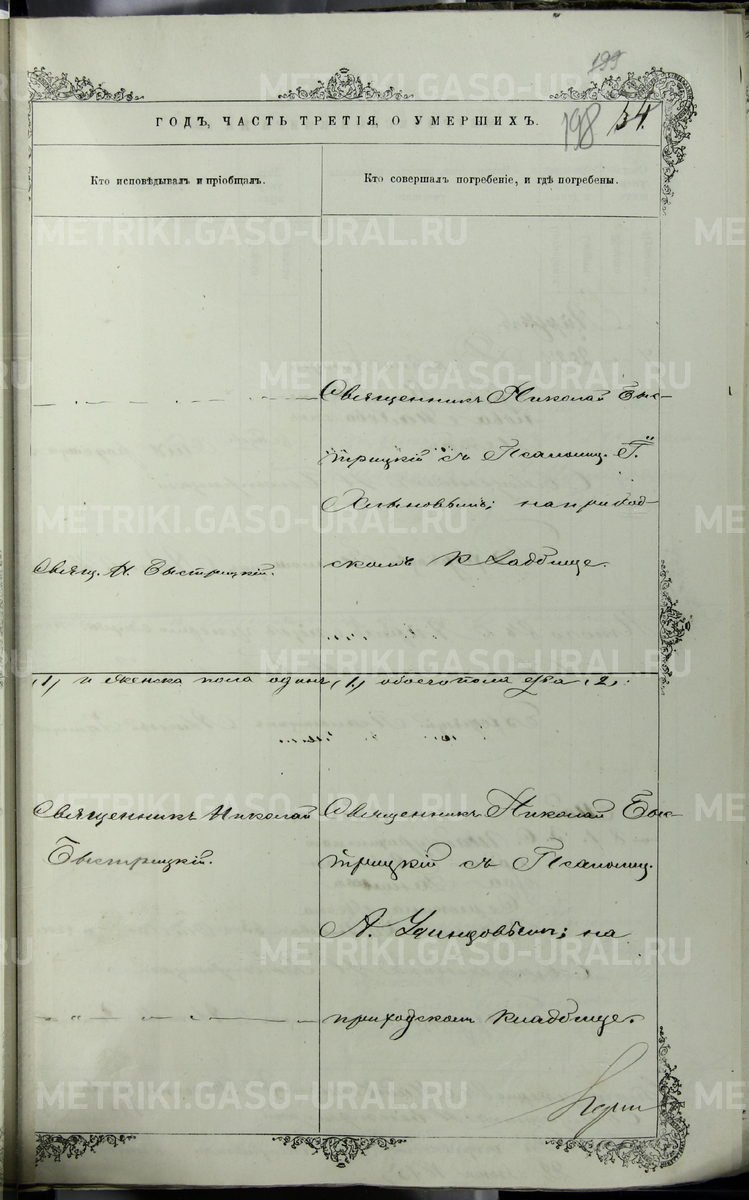 199
198 54
ГОДЪ, ЧАСТЬ ТРЕТІЯ, О УМЕРШИХЪ.
Кто исповѣдывалъ и пріобщалъ.
Кто совершалъ погребеніе, и гдѣ погребены.
Священникъ Николай Быс-
трицкій съ Псаломщ. Г.
на приход-
скомъ кладбище.
Свящ. Н. Быстрицкій.
(1) и женска пола одинъ (1) обоего пола два (2).
Священникъ Николай
Быстрицкій.
Священникъ Николай Быс-
трицкій съ Псаломщ.
А. Удинцовымъ; на
приходскомъ кладбище.
METRIKI.GASO-URAL.RU